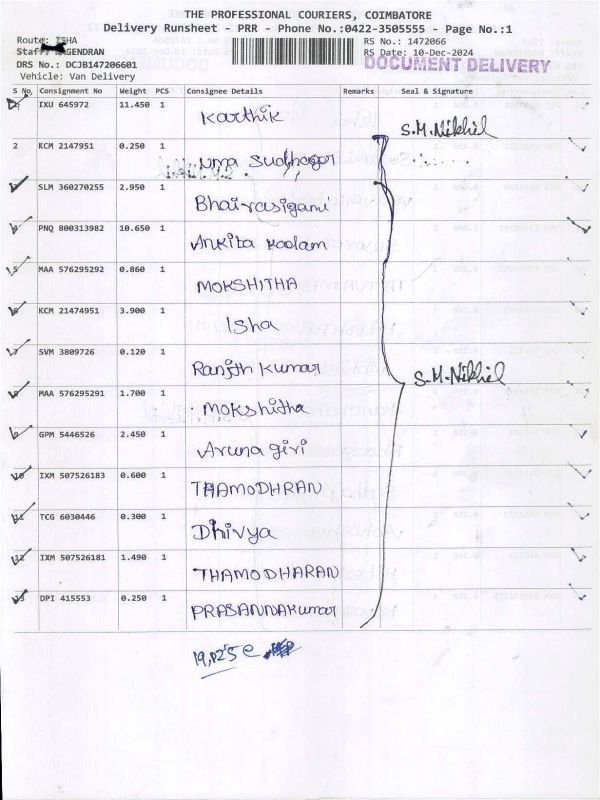 THE PROFESSIONAL COURIERS, COIMBATORE
Delivery Runsheet - PRR - Phone No.:0422-3505555 - Page No.:1
Route: ISHA RS No.: 1472066
Staff: NAGENDRAN RS Date: 10-Dec-2024
DRS No.: DCJB147206601 DOCUMENT DELIVERY
Vehicle: Van Delivery
S No. Consignment No Weight PCS Consignee Details Remarks Seal & Signature
1 IXU 645972 11.450 1 Karthik S.M.Nikhil
2 KCM 2147951 0.250 1 uma Sudhagar
3 SLM 360270255 2.950 1 Bhairasigami
4 PNQ 800313982 10.650 1 Ankita kadam
5 MAA 576295292 0.860 1 MOKSHITHA
6 KCM 21474951 3.900 1 Isha
7 SVM 3809726 0.120 1 Ranjith kumar S.M.Nikhil
8 MAA 576295291 1.700 1 Mokshitha
9 GPM 5446526 2.450 1 Aruna giri
10 IXM 507526183 0.600 1 THAMODHRAN
11 TCG 6030446 0.300 1 Dhivya
12 IXM 507526181 1.490 1 THAMODHARAN
13 DPI 415553 0.250 1 PRASANNAKumar